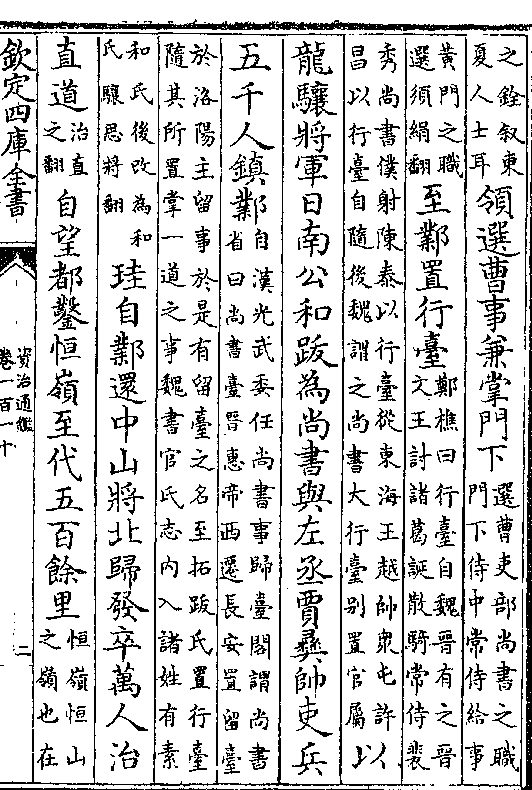 之銓叙東
夏人士耳
領選曹事兼掌門下
選曹吏部尚書之職
門下侍中常侍給事
黃門之職
選須絹翻
至鄴置行臺
鄭樵曰行臺自魏晉有之晉
文王討諸葛誕散騎常侍裴
秀尚書僕射陳泰以行臺從東海王越帥衆屯許
昌以行臺自隨後魏謂之尚書大行臺别置官屬
以
龍驤將軍日南公和跋為尚書與左丞賈彝帥吏兵
五千人鎮鄴
自漢光武委任尚書事歸臺閣謂尚書
省曰尚書臺晉惠帝西遷長安置留臺
於洛陽主留事於是有留臺之名至拓跋氏置行臺
隨其所置掌一道之事魏書官氏志内入諸姓有素
和氏後改為和
氏驤思將翻
珪自鄴還中山將北歸發卒萬人治
直道
治直
之翻
自望都鑿恒嶺至代五百餘里
恒嶺恒山
之嶺也在
欽定四庫全書
資治通鑑
卷一百一十
二